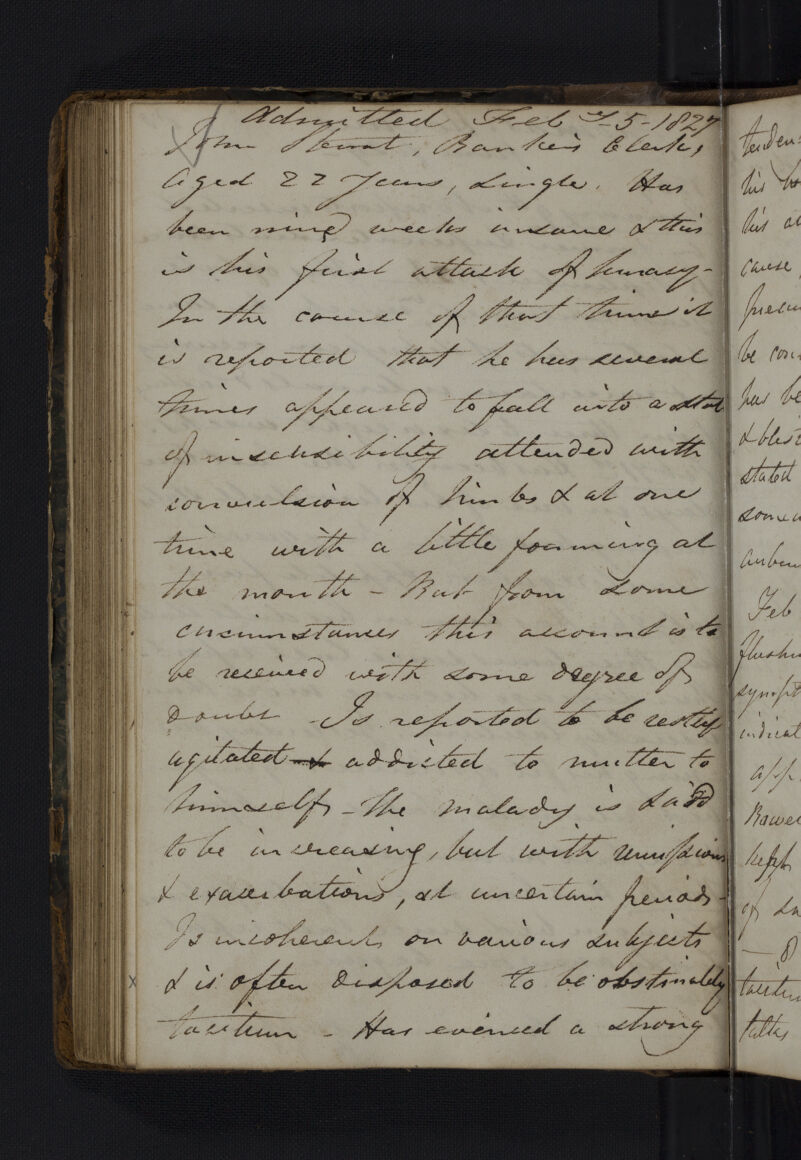 Admitted Feb.y 5 - 1827
John Stewart, Banker's Clerk,
Aged 22 Years, Single. Has
been nine weeks insane & this
is his first attack of lunacy -
In the course of that time it
is reported that he has several
times appeared to fall into a state
of insensibility attended with
convulsion of limbs & at one
time with a little foaming at
the mouth - But from some
circumstances this account is to
be received with some degree of
doubt - Is reported to be restless
agitated & addicted to mutter to
himself - The malady is said
to be increasing, but with remissions
& exacerbations, at uncertain periods -
Is incoherent on various subjects
x & is often disposed to be obstinately
taciturn - Has evinced a strong
his
his
cause
be
has be
stated
Feb
kept
of
talks